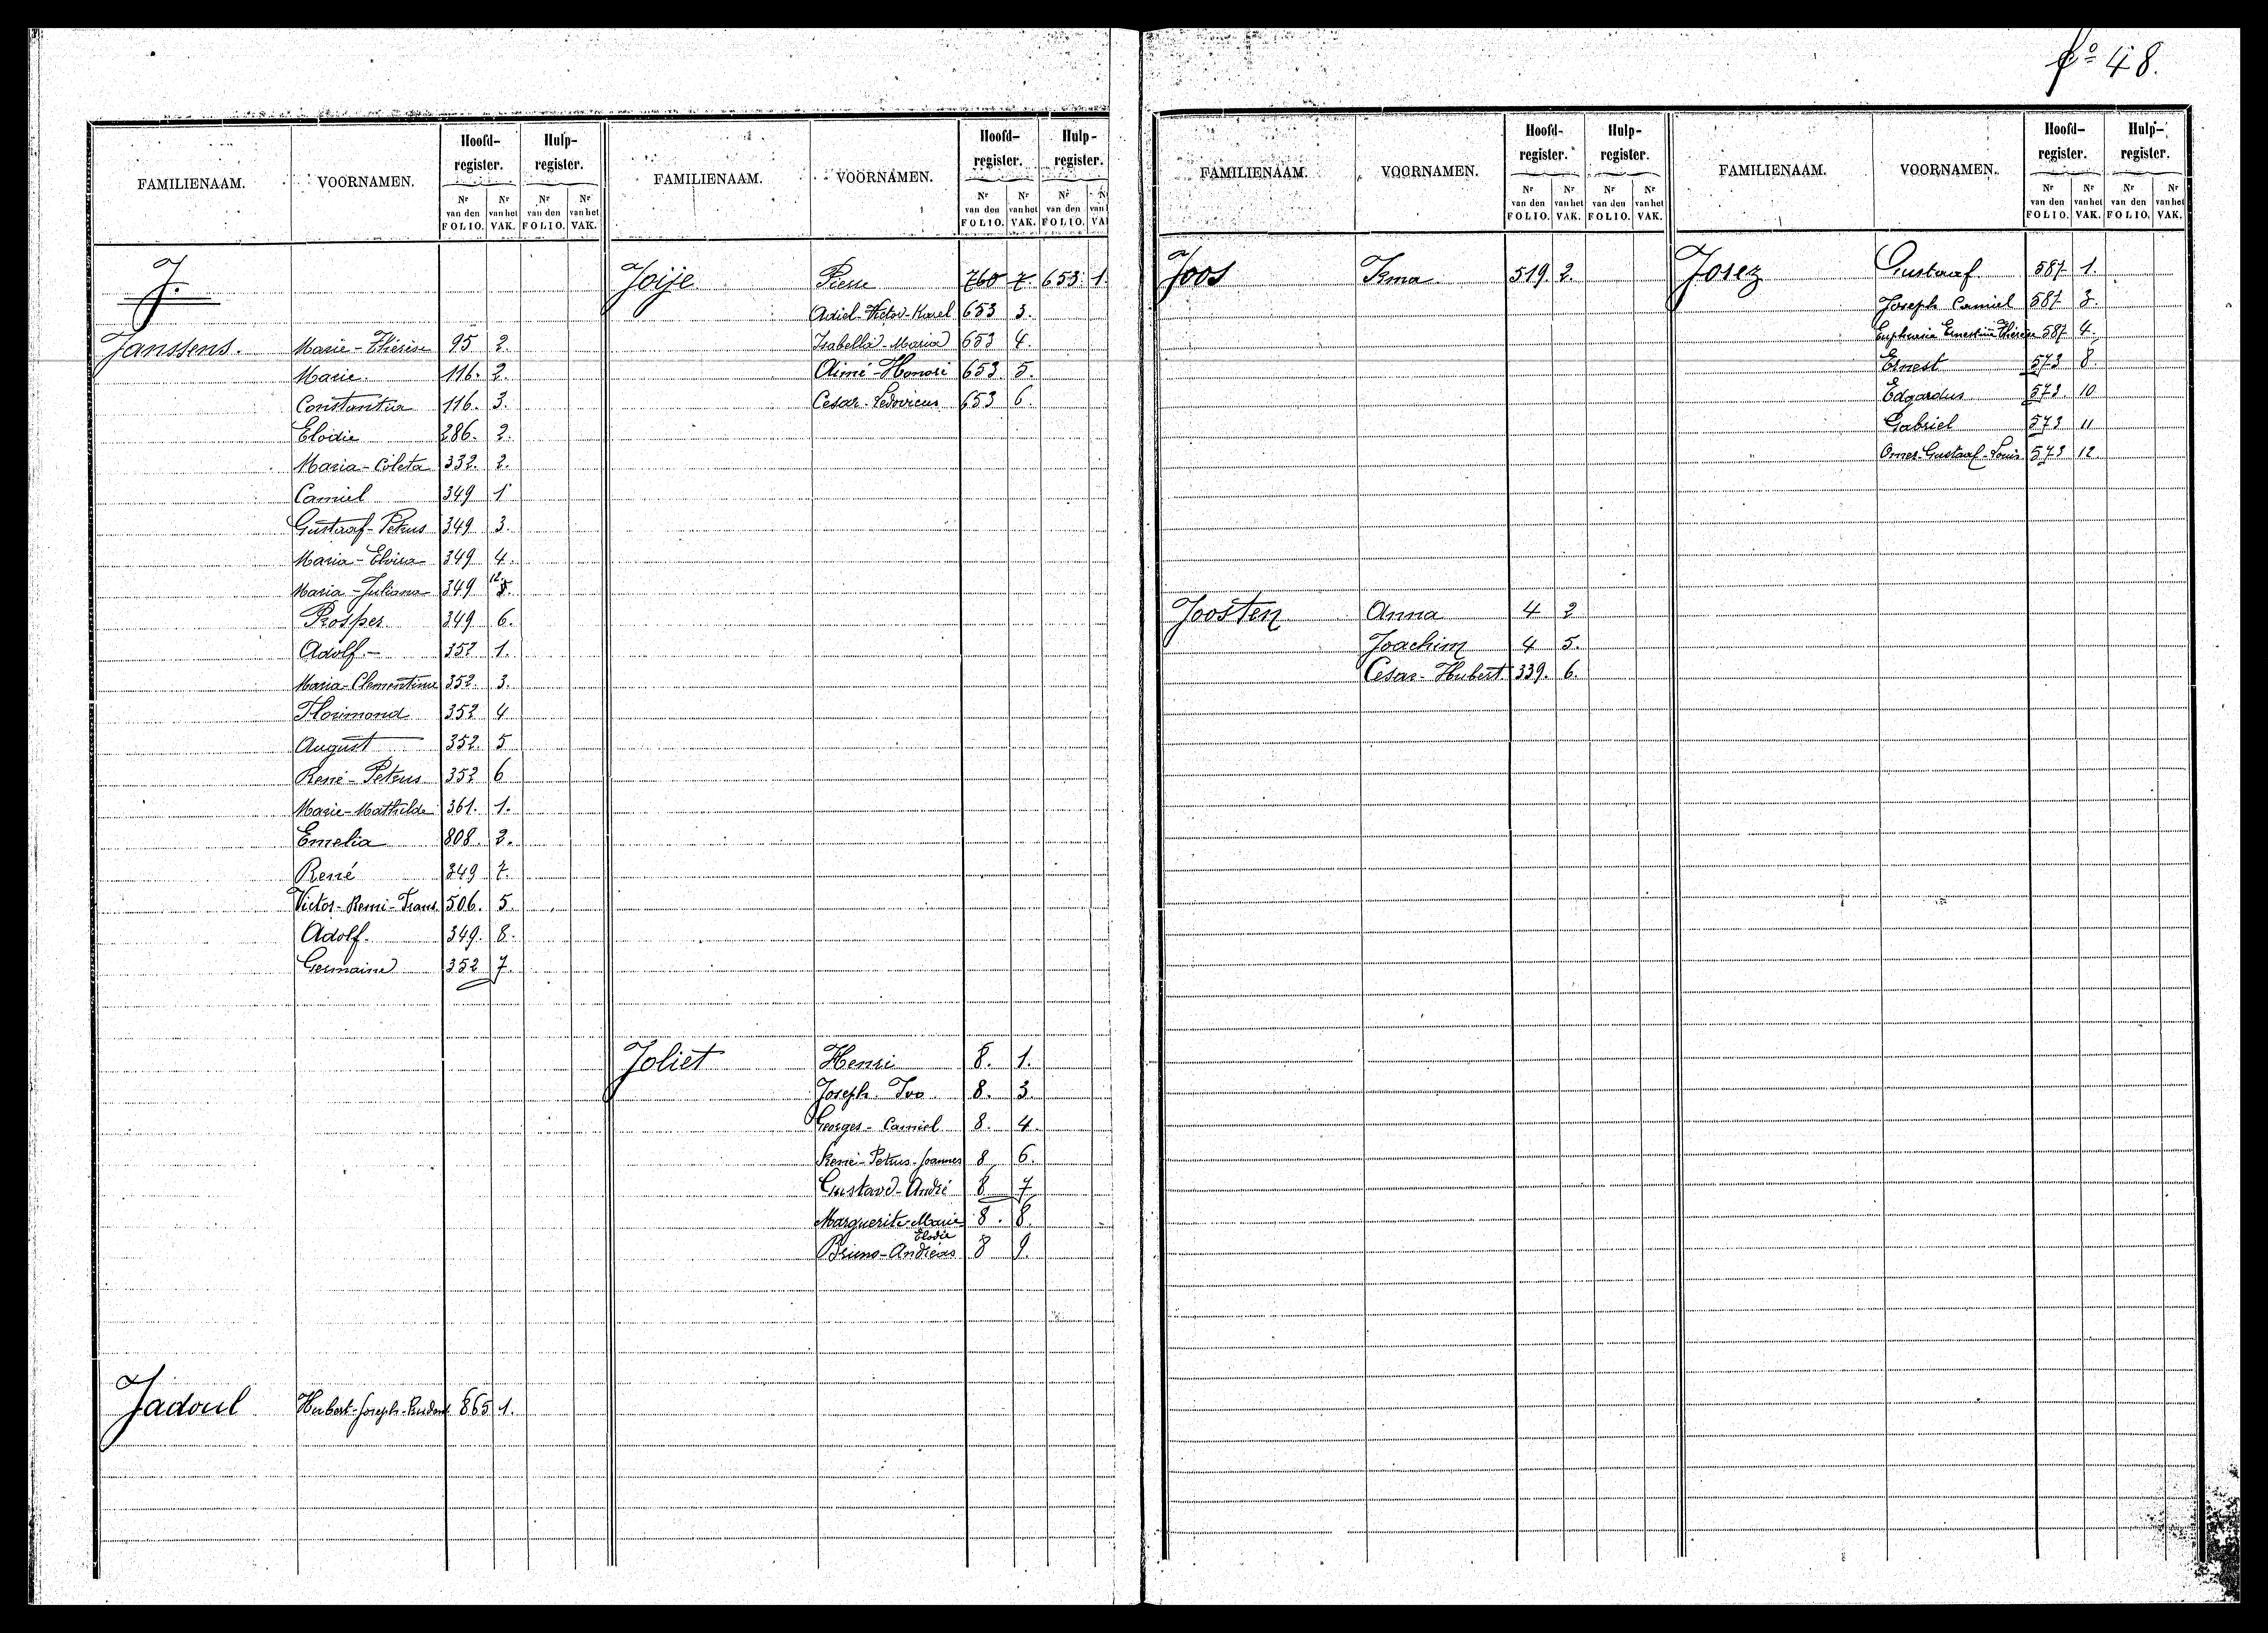 fo 48.
FAMILIENAAM. VOORNAMEN. Hoofd-register. Hulp-register.
Nr van den FOLIO. Nr van het VAK. Nr van den FOLIO. Nr van het VAK.
J.
Janssens. Marie-Thérèse 95 2.
Marie. 116. 2.
Constantia 116. 3.
Elodie 286. 2.
Maria-Coleta 332. 2.
Camiel 349 1
Gustaaf-Petrus 349 3.
Maria-Elvira 349 4.
Maria-Juliana 349 12.
Prosper 349 6.
Adolf.- 352 1.
Maria-Clementina 352. 3.
Florimond 352 4
August 352. 5
René-Petrus 352 6
Marie-Mathilde 361. 1.
Emelia 808. 2.
René 349 7.
Victor-Remi-Frans. 506. 5.
Adolf. 349. 8.
Germaine 352 7.
Jadoul Hubert-Joseph- 865 1.
FAMILIENAAM. VOORNAMEN. Hoofd-register. Hulp-register.
Nr van den FOLIO. Nr van het VAK. Nr van den FOLIO. N van h VA
Joije Pierre 760 7. 653. 1.
Adiel-Victor-Karel 653 3.
Isabella-Maria 653 4.
Aimé-Honoré 653. 5.
Cesar-Ledovicus 653 6.
Joliet Henri 8. 1.
Joseph-Ivo 8. 3
Georges-Camiel 8. 4.
René-Petrus-Joannes 8 6.
Gustave-André 8 7
Marguerite-Marie Elodie 8. 8.
Bruno-Andréas 8 9.
FAMILIENAAM. VOORNAMEN. Hoofd-register. Hulp-register.
Nr van den FOLIO. Nr van het VAK. Nr van den FOLIO. Nr van het VAK.
Joos Irma 519. 2.
Joosten Anna 4 2
Joachim 4 5.
Cesar-Hubert 339. 6.
FAMILIENAAM. VOORNAMEN. Hoofd-register. Hulp-register.
Nr van den FOLIO. Nr van het VAK. Nr van den FOLIO. Nr van het VAK.
Josez Gustaaf 587 1.
Joseph Camiel 587 3.
Ernestine Thérèse 587 4.
Ernest 573 8
Edgardus 573. 10
Gabriel 573 11
Omer-Gustaaf-Louis 573 12